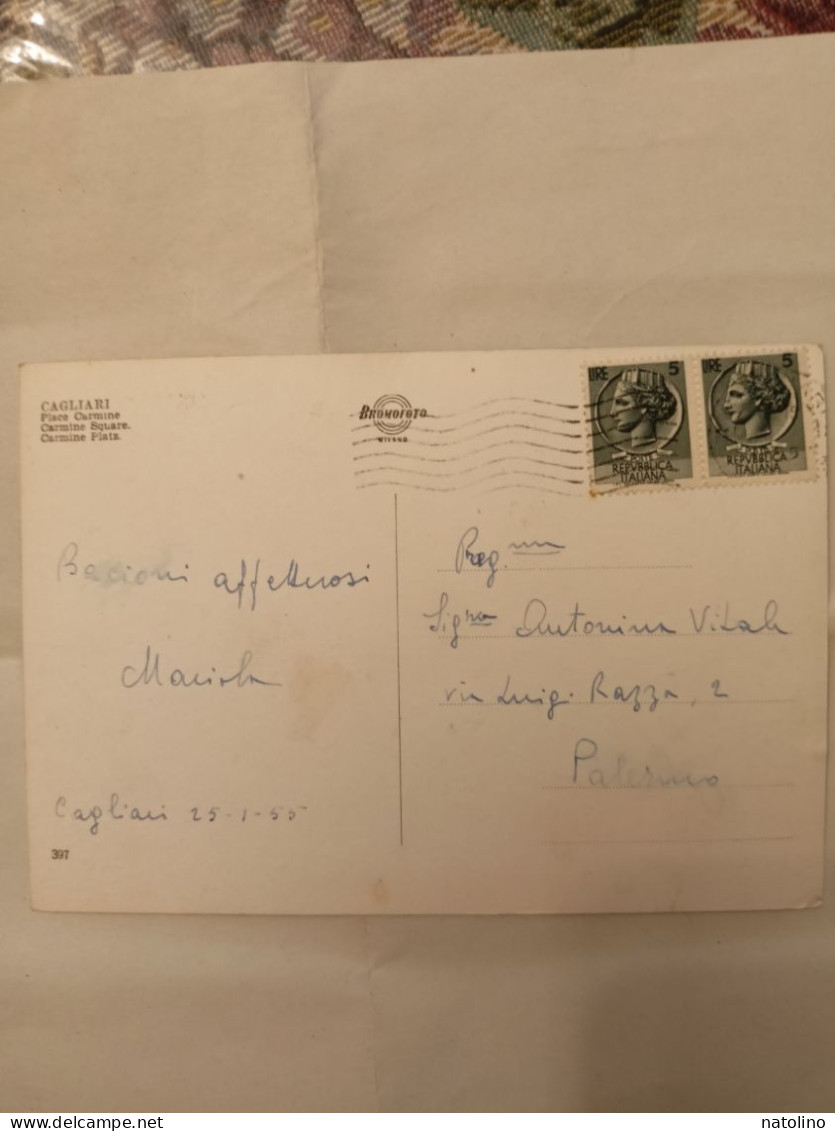 CAGLIARI
Place Carmine
Carmine Square.
Carmine Platz.
BROMOFOTO
MILANO
LIRE 5
POSTE
REPVBBLICA
ITALIANA
LIRE 5
POSTE
REPVBBLICA
ITALIANA
Bacioni affettuosi
Cagliari 25-1-55
397
Preg.ma
Sig.ra Antonina Vitale
via Luigi Razza, 2
Palermo
natolino